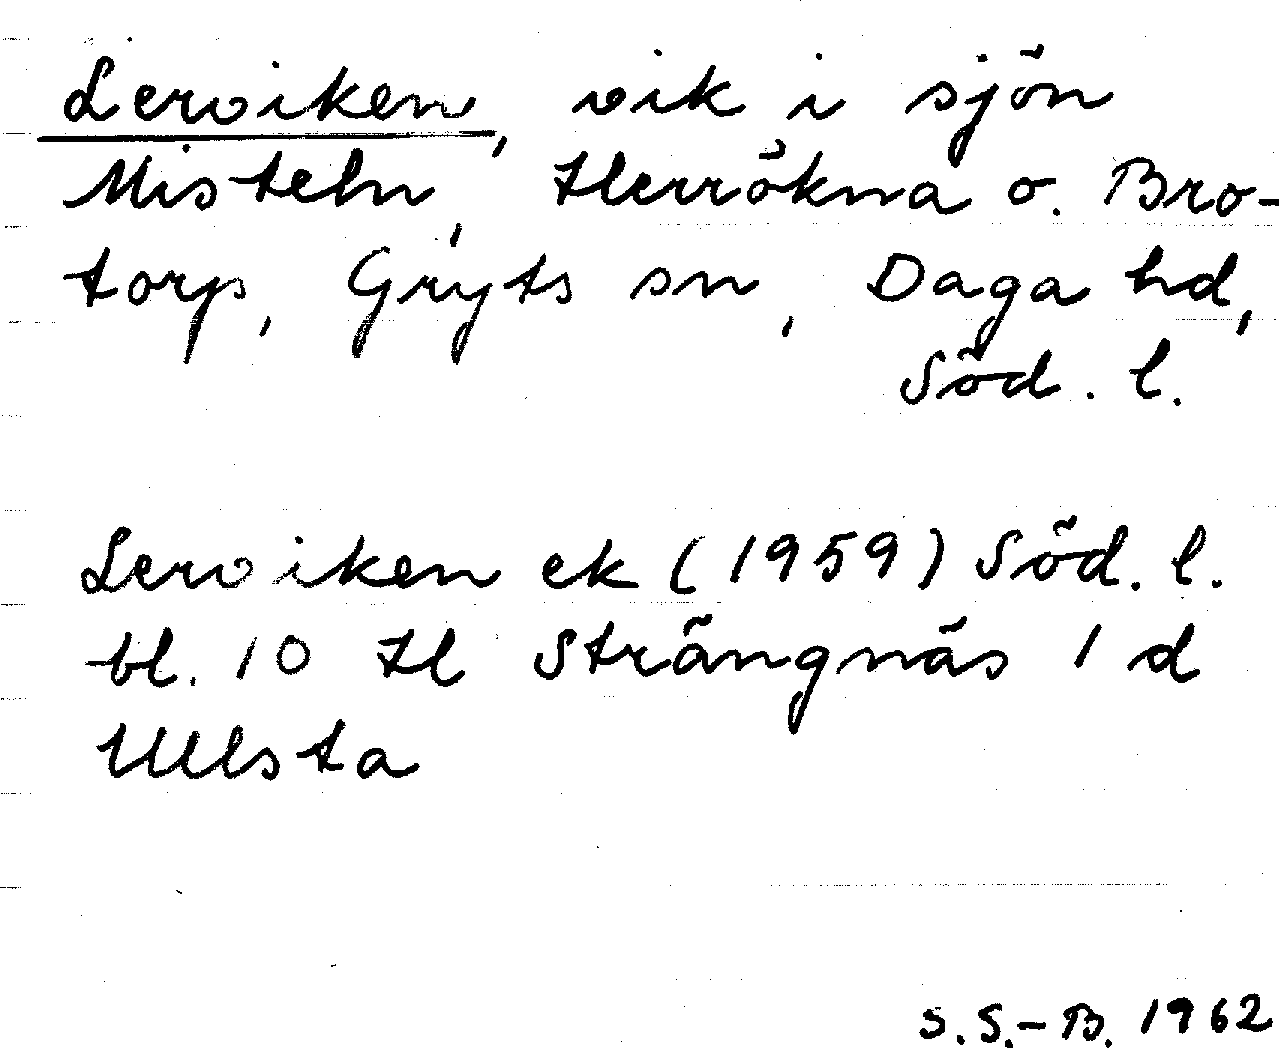 Lerviken, vik i sjön
Misteln, Herrökna o. Bro-
torp, Gryts sn, Daga hd,
Söd. l.
Lerviken ek (1959) Söd. l.
bl. 10 H Strängnäs 1 d
Ullsta
S.S.-B. 1962